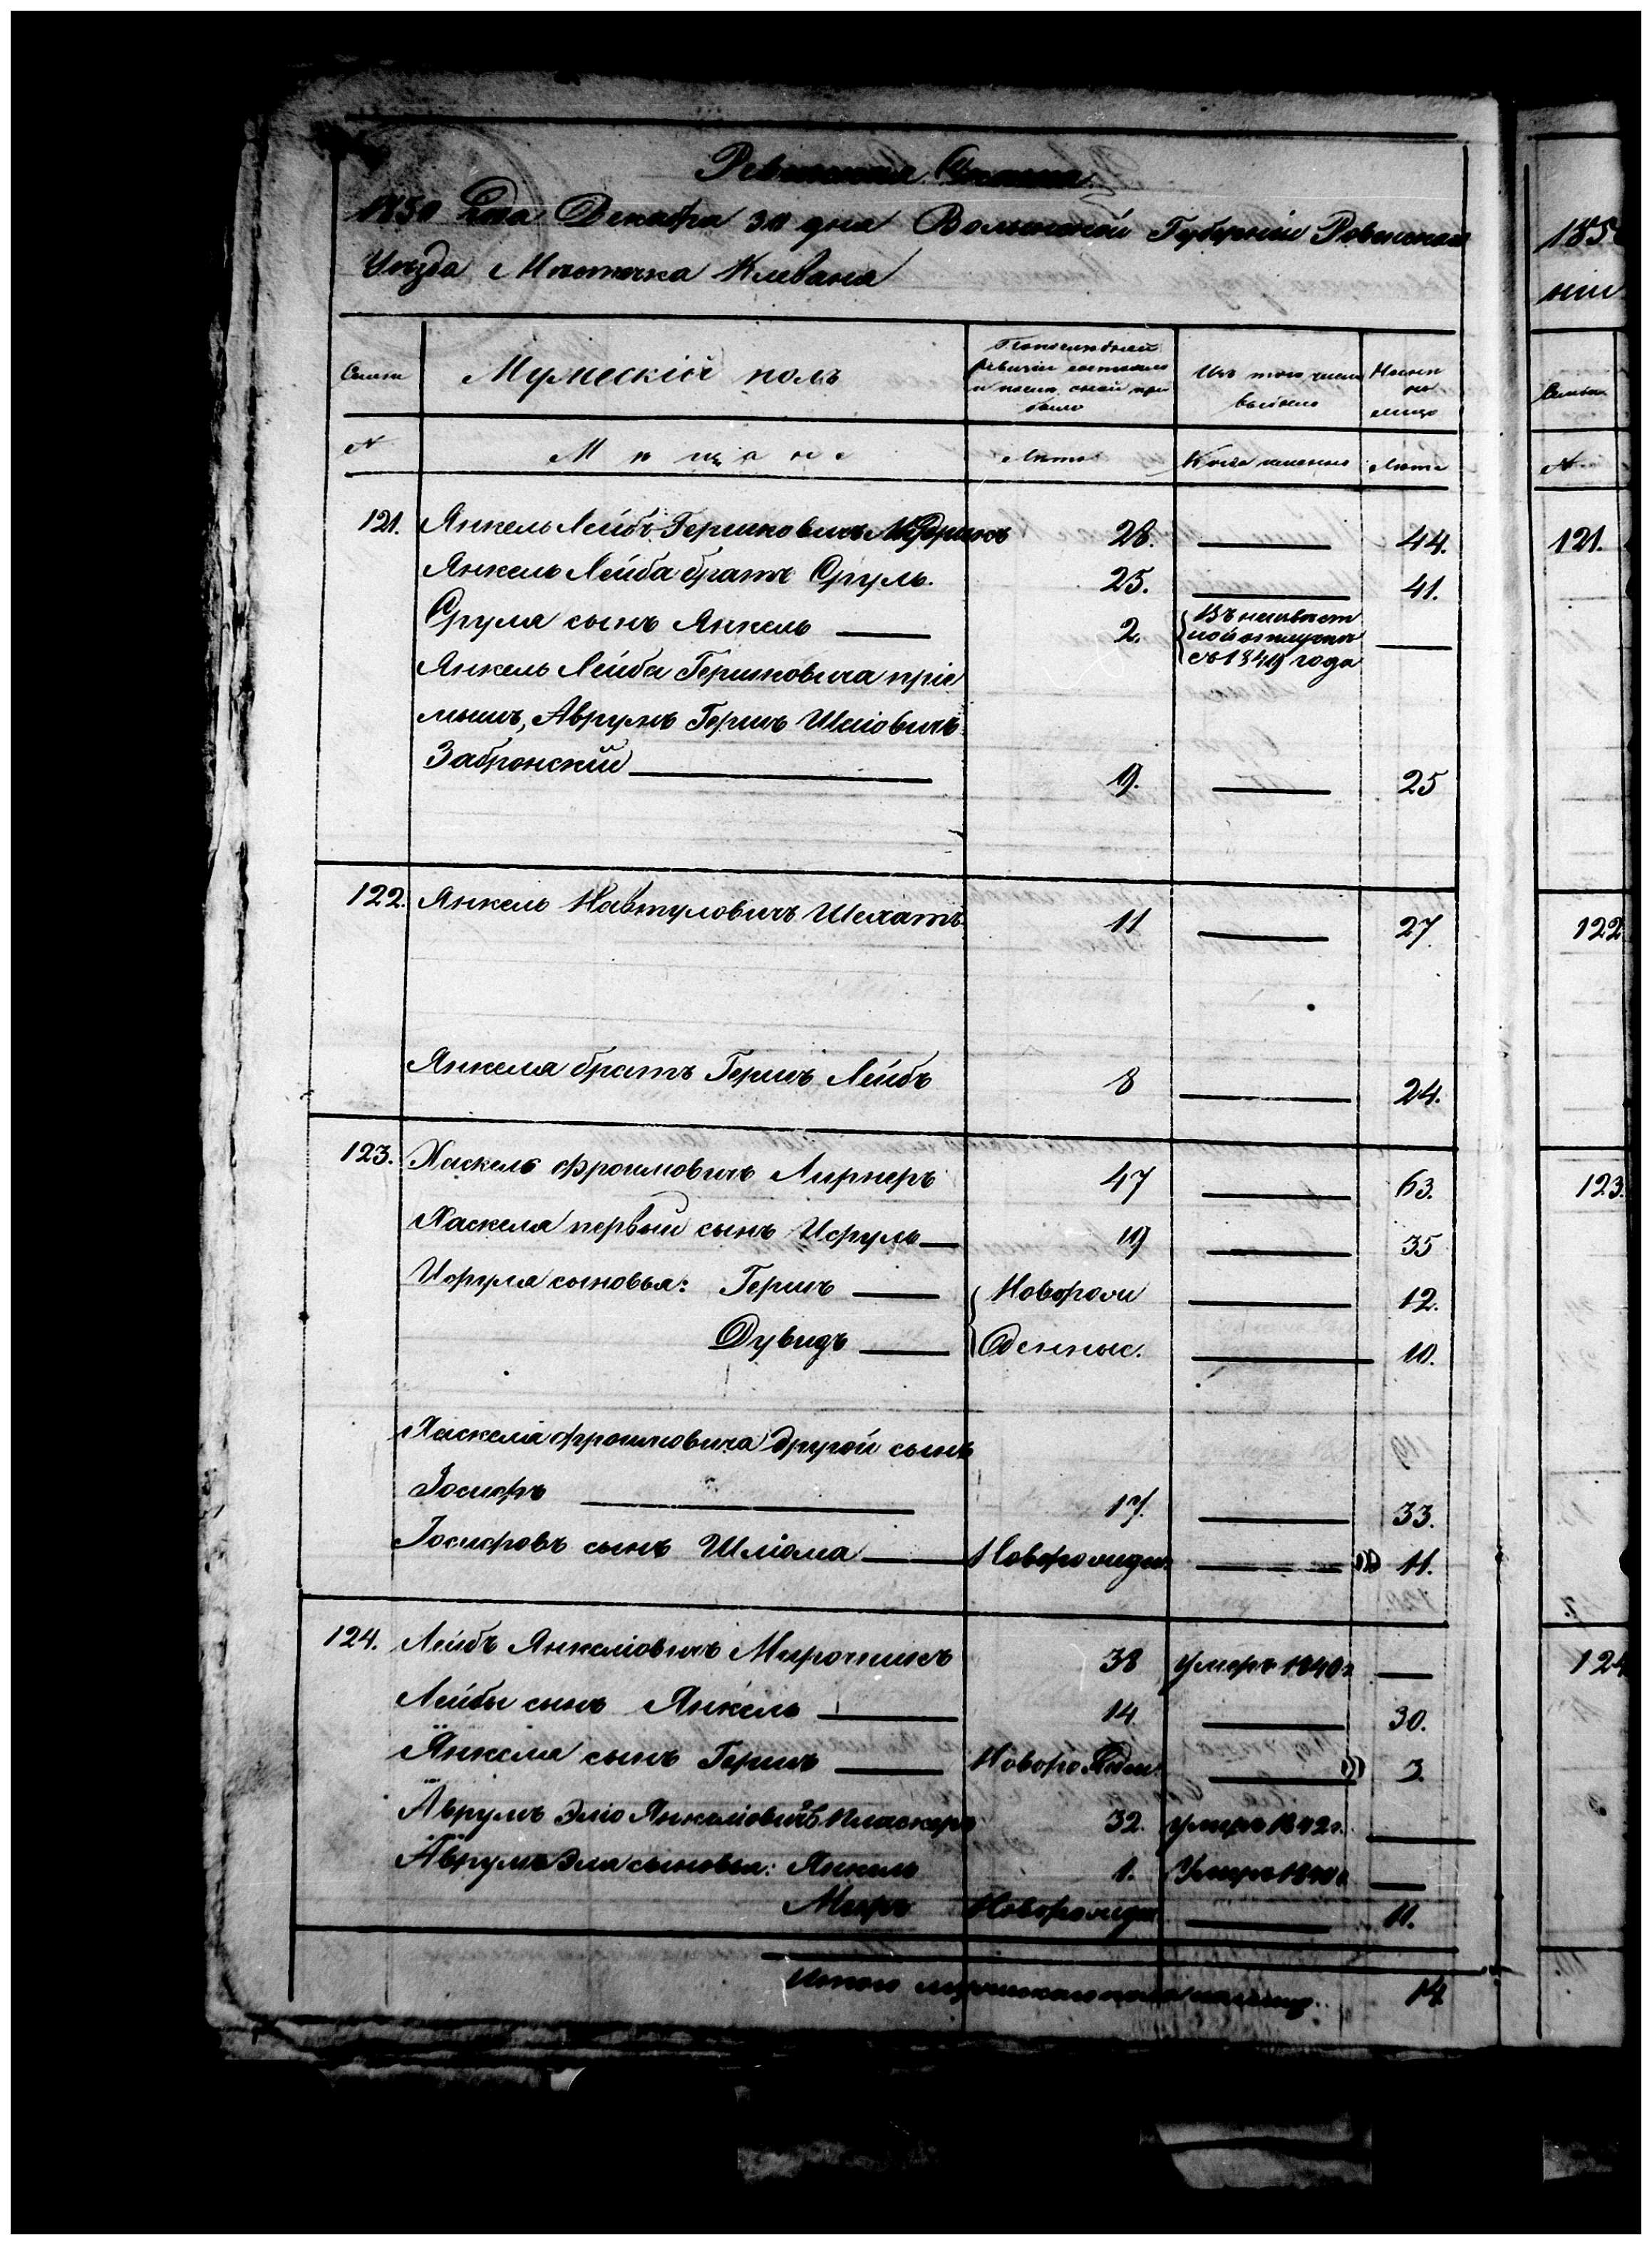 Ревизская Сказка
1850 Года Декабря 30 дня Волынской Губерніи Ровенскаго
Уѣзда Мѣстечка Клеваня
Семьи
Мужескій полъ
По послѣдней
ревизіи состояло
и послѣ оной при
было
Изъ того числа
выбыло
Нынѣ
на
лицо
№
Мѣщане
Лѣта
Когда именно
Лѣта
121. Янкель Лейбъ Гершковичъ 28. 44.
Янкель Лейба братъ Сруль. 25. 41.
Сруля сынъ Янкель 2. Въ неизвѣст
ной отлучкѣ
съ 1849 года
Янкель Лейба Гершковича пріе
мышъ, Аврумъ Гершъ Шаіовичъ
Забронскій 19. 25
122. Янкель Навтуловичъ Шехатъ 11 27.
Янкеля братъ Гершъ Лейбъ 8 24.
123. Хаскель Фроимовичъ Лирнеръ 47 63.
Хаскеля первый сынъ Исруль 19 35
Исруля сыновья: Гершъ Новорож 12.
Дувидъ денные. 10.
Хаскеля Фроимовича другой сынъ
Іосифъ 17. 33.
Іосифовъ сынъ Шліома Новорожден. 11.
124. Лейбъ Янкеліовичъ Мирочникъ 38 умеръ 1840 г.
Лейбы сынъ Янкель 14. 30.
Янкеля сынъ Гершъ Новорожден. 3.
Аврумъ Эліо Янкеліовичъ 32. умеръ 1842 г.
Аврумъ Эля сыновья: Янкель 1. Умеръ 1840 г.
Меръ Новорожден. 11.
Итого мужескаго пола на лицо. 14
185
нии
Семьи
№
121.
122
123.
124